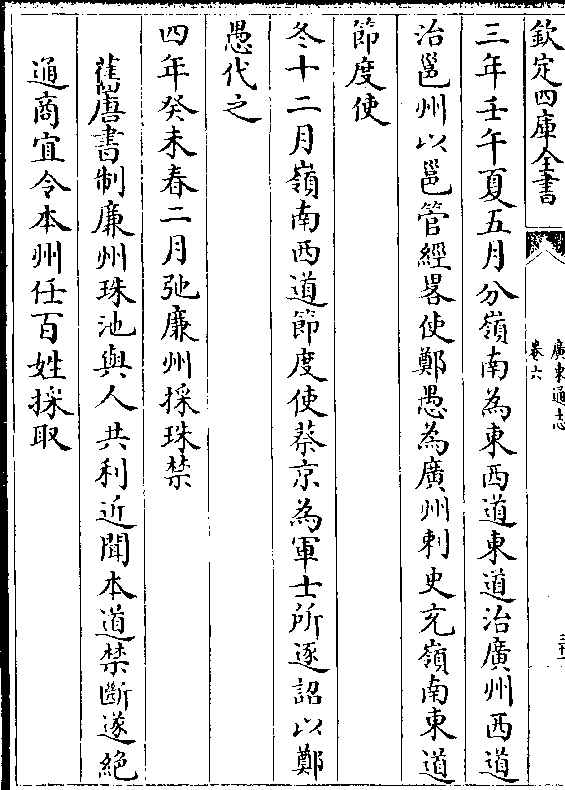 欽定四庫全書
廣東通志
卷六
三年壬午夏五月分嶺南為東西道東道治廣州西道
治邕州以邕管經畧使鄭愚為廣州刺史充嶺南東道
節度使
冬十二月嶺南西道節度使蔡京為軍士所逐詔以鄭
愚代之
四年癸未春二月弛廉州採珠禁
舊唐書制廉州珠池與人共利近聞本道禁斷遂絶
通商宜令本州任百姓採取